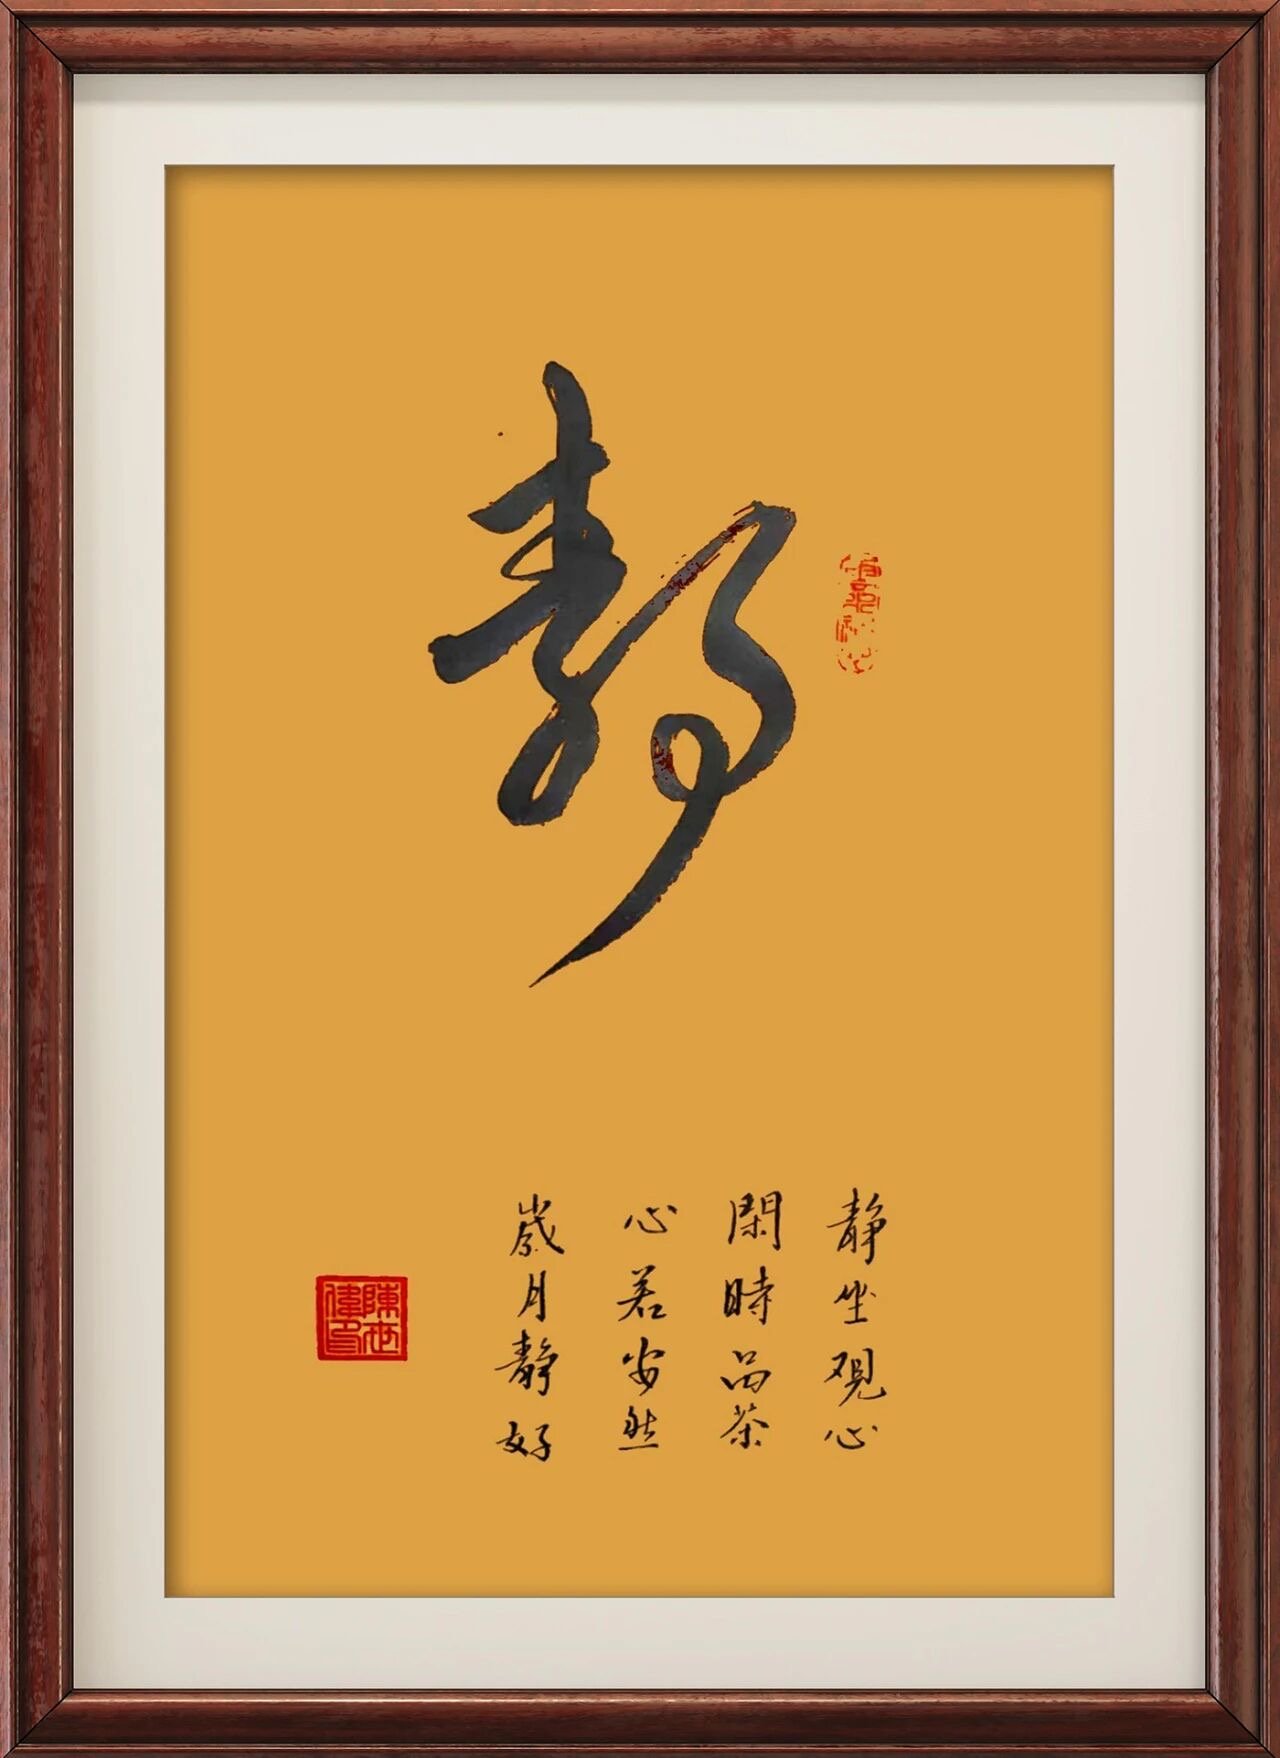 静
静坐观心
閑時品茶
心若安然
歲月静好
陳世偉印